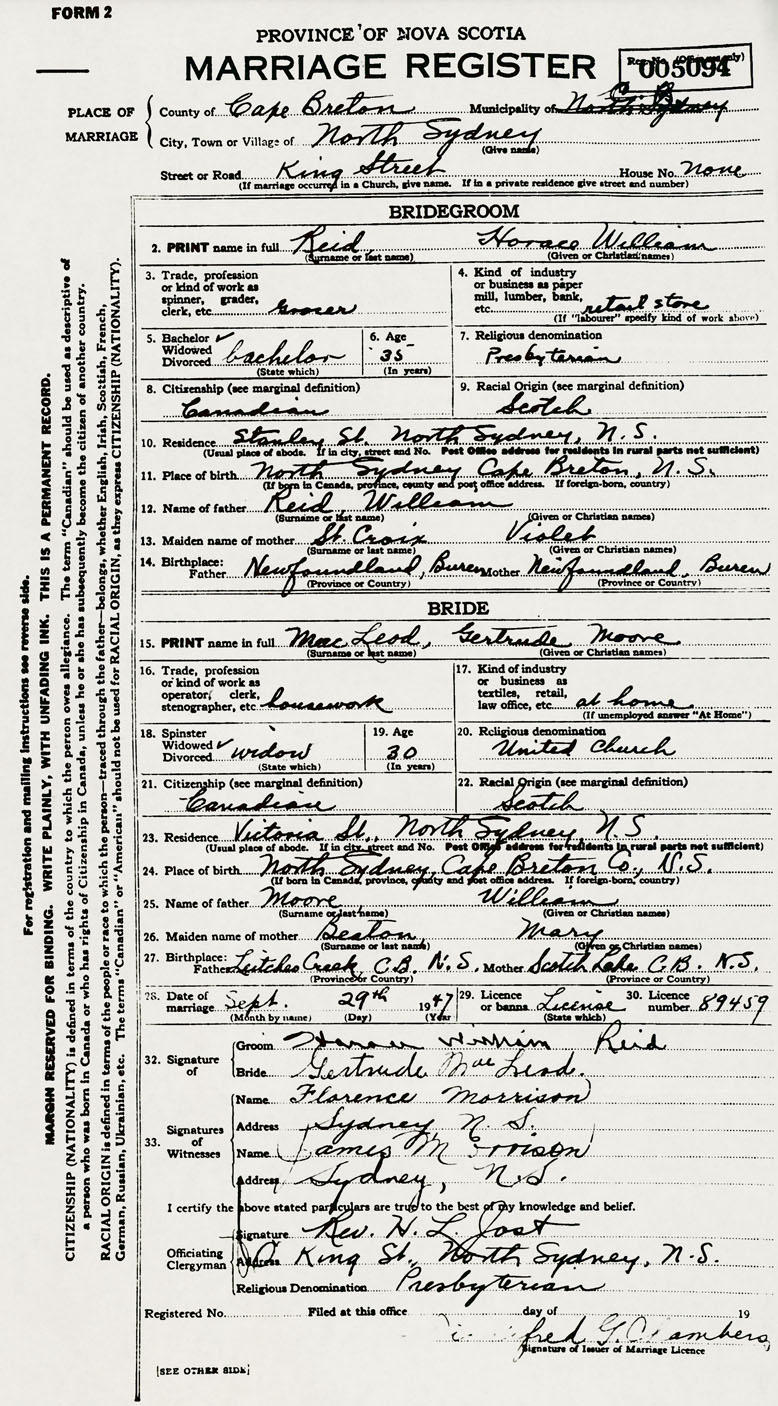 FORM 2
PROVINCE OF NOVA SCOTIA
MARRIAGE REGISTER
005094
PLACE OF MARRIAGE
County of Cape Breton Municipality of
City, Town or Village of North Sydney
(Give name)
Street or Road King Street House No. none
(If marriage occurred in a Church, give name. If in a private residence give street and number)
BRIDEGROOM
2. PRINT name in full Reid, Horace William
(Surname or last name) (Given or Christian names)
3. Trade, profession or kind of work as spinner, grader, clerk, etc. Grocer
4. Kind of industry or business as paper mill, lumber, bank, etc. retail store
(If "labourer" specify kind of work above)
5. Bachelor ✓ Widowed Divorced bachelor
(State which)
6. Age 35
(In years)
7. Religious denomination
Presbyterian
8. Citizenship (see marginal definition)
Canadian
9. Racial Origin (see marginal definition)
Scotch
10. Residence Stanley St. North Sydney, N.S.
(Usual place of abode. If in city, street and No. Post Office address for residents in rural parts not sufficient)
11. Place of birth North Sydney Cape Breton, N.S.
(If born in Canada, province, county and post office address. If foreign-born, country)
12. Name of father Reid, William
(Surname or last name) (Given or Christian names)
13. Maiden name of mother St. Croix Violet
(Surname or last name) (Given or Christian names)
14. Birthplace: Father Newfoundland, Buren Mother Newfoundland, Buren
(Province or Country) (Province or Country)
BRIDE
15. PRINT name in full MacLeod, Gertrude Moore
(Surname or last name) (Given or Christian names)
16. Trade, profession or kind of work as operator, clerk, stenographer, etc. housework
17. Kind of industry or business as textiles, retail, law office, etc. at home
(If unemployed answer "At Home")
18. Spinster Widowed ✓ Divorced widow
(State which)
19. Age 30
(In years)
20. Religious denomination
United Church
21. Citizenship (see marginal definition)
Canadian
22. Racial Origin (see marginal definition)
Scotch
23. Residence Victoria St., North Sydney, N.S.
(Usual place of abode. If in city, street and No. Post Office address for residents in rural parts not sufficient)
24. Place of birth North Sydney, Cape Breton Co., N.S.
(If born in Canada, province, county and post office address. If foreign-born, country)
25. Name of father Moore, William
(Surname or last name) (Given or Christian names)
26. Maiden name of mother Beaton, Mary
(Surname or last name) (Given or Christian names)
27. Birthplace: Father Leitches Creek, C.B. N.S. Mother Scotch Lake C.B. N.S.
(Province or Country) (Province or Country)
28. Date of marriage Sept. 29th 1947
(Month by name) (Day) (Year)
29. Licence or banns License
(State which)
30. Licence number 89459
32. Signature of
Groom Horace William Reid
Bride Gertrude MacLeod.
33. Signatures of Witnesses
Name Florence Morrison
Address Sydney N.S.
Name James Morrison
Address Sydney, N.S.
I certify the above stated particulars are true to the best of my knowledge and belief.
Officiating Clergyman
Signature Rev. H. L. Jost
Address King St., North Sydney, N.S.
Religious Denomination Presbyterian
Registered No. Filed at this office day of 19
G. Chambers
Signature of Issuer of Marriage Licence
[SEE OTHER SIDE]
For registration and mailing instructions see reverse side.
MARGIN RESERVED FOR BINDING. WRITE PLAINLY, WITH UNFADING INK. THIS IS A PERMANENT RECORD.
CITIZENSHIP (NATIONALITY) is defined in terms of the country to which the person owes allegiance. The term "Canadian" should be used as descriptive of
a person who was born in Canada or who has rights of Citizenship in Canada, unless he or she has subsequently become the citizen of another country.
RACIAL ORIGIN is defined in terms of the people or race to which the person—traced through the father—belongs, whether English, Irish, Scottish, French,
German, Russian, Ukrainian, etc. The terms "Canadian" or "American" should not be used for RACIAL ORIGIN, as they express CITIZENSHIP (NATIONALITY).